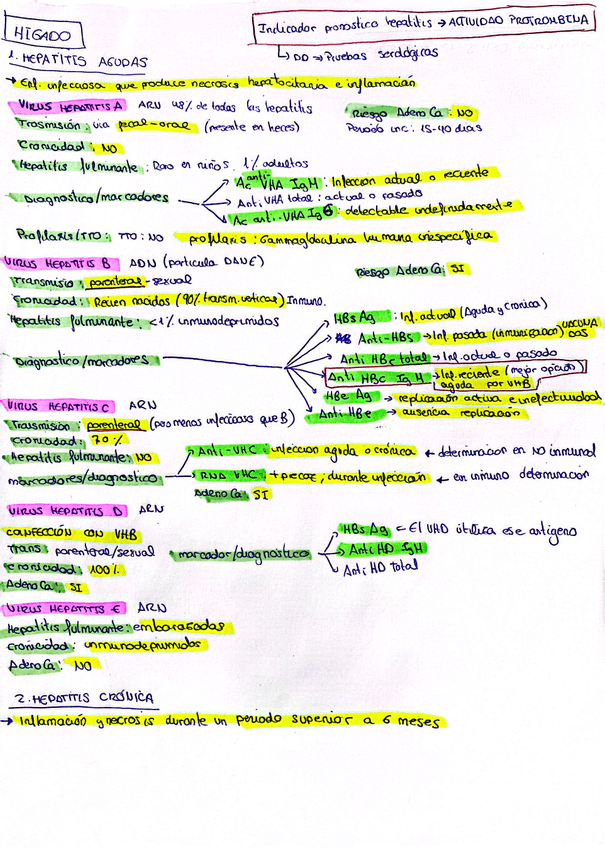 HIGADO
Indicador pronostico hepatitis → ACTIVIDAD PROTROMBINA
↳ DD → Pruebas serológicas
1. HEPATITIS AGUDAS
→ Enf. infecciosa que produce necrosis hepatocitaria e inflamación
VIRUS HEPATITIS A ARN 48% de todas las hepatitis
Riesgo Adeno Ca: NO
Trasmisión: via fecal-oral (presente en heces)
Periodo inc: 15-40 dias
Cronicidad: NO
Hepatitis fulminante: Raro en niños, 1% adultos
Diagnostico/marcadores
Ac anti-VHA IgM: Infeccion actual o reciente
Anti VHA total: actual o pasado
Ac anti-VHA IgG: detectable indefinidamente
Profilaxis/TTO: TTO: NO profilaxis: Gammaglobulina humana inespecifica
VIRUS HEPATITIS B ADN (particula DANE)
Riesgo Adeno Ca: SI
Transmisio: parenteral-sexual
Cronicidad: Recien nacidos (90% transm. vertical) Inmuno.
Hepatitis fulminante: <1% inmunodeprimidos
Diagnostico/marcadores
HBs Ag: Inf. actual (Aguda y Cronica)
Anti-HBs → Inf pasada (inmunizacion) VACUNADOS
Anti HBc total → Inf. actual o pasado
Anti HBc IgM → Inf. reciente (mejor opción) aguda por VHB
HBe Ag → replicación activa e infectividad
Anti-HBe → ausencia replicación
VIRUS HEPATITIS C ARN
Transmision: parenteral (pero menos infeccioso que B)
Cronicidad: 70%
Hepatitis fulminante: NO
marcadores/diagnostico
Anti-VHC: infeccion aguda o crónica ← determinacion en NO inmunod
RNA VHC: + precoz, durante infección ← en inmuno determinacion
Adeno Ca: SI
VIRUS HEPATITIS D ARN
COINFECCIÓN CON VHB
Trans: parenteral/sexual
marcador/diagnostico
HBs Ag ← El VHD utiliza ese antigeno
Anti HD IgM
Anti HD total
Cronicidad: 100%
Adeno Ca: SI
VIRUS HEPATITIS E ARN
Hepatitis fulminante: embarazadas
Cronicidad: inmunodeprimidos
Adeno Ca: NO
2. HEPATITIS CRÓNICA
→ Inflamación y necrosis durante un periodo superior a 6 meses